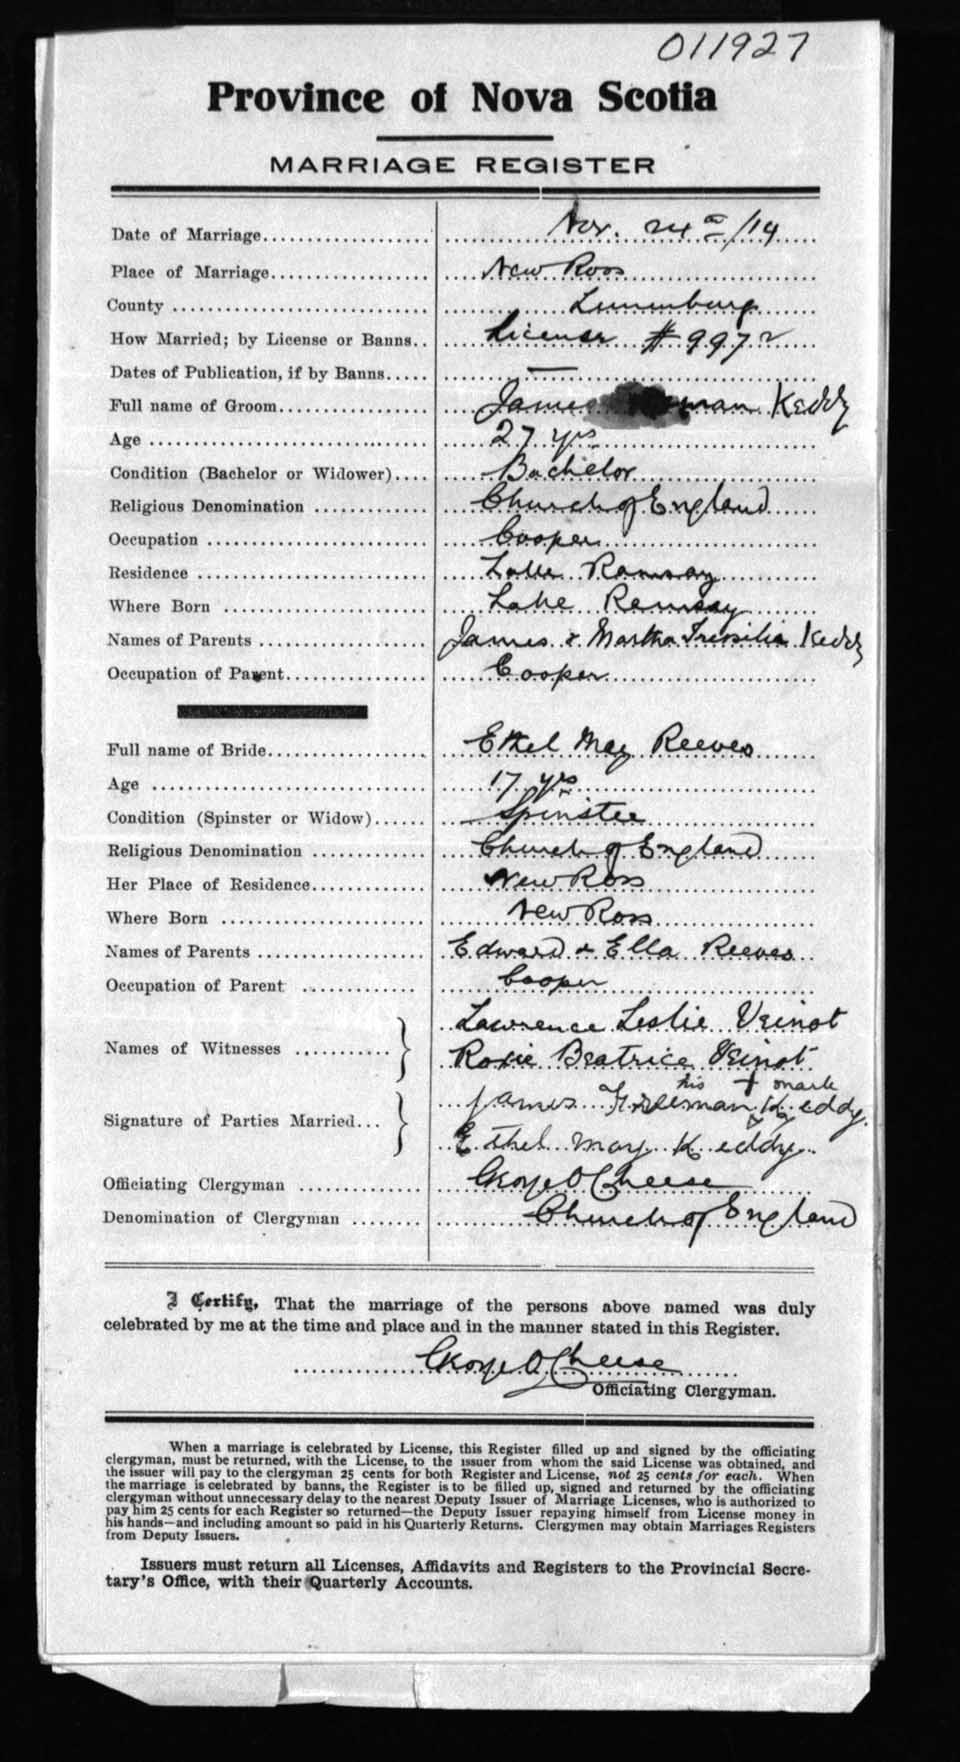 011927
Province of Nova Scotia
MARRIAGE REGISTER
Date of Marriage.................... Nov. 24th/14
Place of Marriage.................... New Ross
County .................... Lunenburg
How Married; by License or Banns.. License # 9972
Dates of Publication, if by Banns..... —
Full name of Groom.................... James man Keddy
Age .................... 27 yrs
Condition (Bachelor or Widower).... Bachelor
Religious Denomination .................... Church of England
Occupation .................... Cooper
Residence .................... Lake Ramsay
Where Born .................... Lake Ramsay
Names of Parents .................... James & Martha Keddy
Occupation of Parent.................... Cooper
Full name of Bride.................... Ethel May Reeves
Age .................... 17 yrs
Condition (Spinster or Widow)...... Spinster
Religious Denomination .................... Church of England
Her Place of Residence.................... New Ross
Where Born .................... New Ross
Names of Parents .................... Edward & Ella Reeves
Occupation of Parent .................... Cooper
Lawrence Leslie Veinot
Names of Witnesses ...........}
Roxie Beatrice Veinot
his + mark
James Freeman Keddy.
Signature of Parties Married...}
Ethel May Keddy.
Officiating Clergyman .................... George O Cheese
Denomination of Clergyman ........ Church of England
I Certify, That the marriage of the persons above named was duly
celebrated by me at the time and place and in the manner stated in this Register.
George O Cheese
Officiating Clergyman.
When a marriage is celebrated by License, this Register filled up and signed by the officiating
clergyman, must be returned, with the License, to the issuer from whom the said License was obtained, and
the issuer will pay to the clergyman 25 cents for both Register and License, not 25 cents for each. When
the marriage is celebrated by banns, the Register is to be filled up, signed and returned by the officiating
clergyman without unnecessary delay to the nearest Deputy Issuer of Marriage Licenses, who is authorized to
pay him 25 cents for each Register so returned—the Deputy Issuer repaying himself from License money in
his hands—and including amount so paid in his Quarterly Returns. Clergymen may obtain Marriages Registers
from Deputy Issuers.
Issuers must return all Licenses, Affidavits and Registers to the Provincial Secre-
tary's Office, with their Quarterly Accounts.